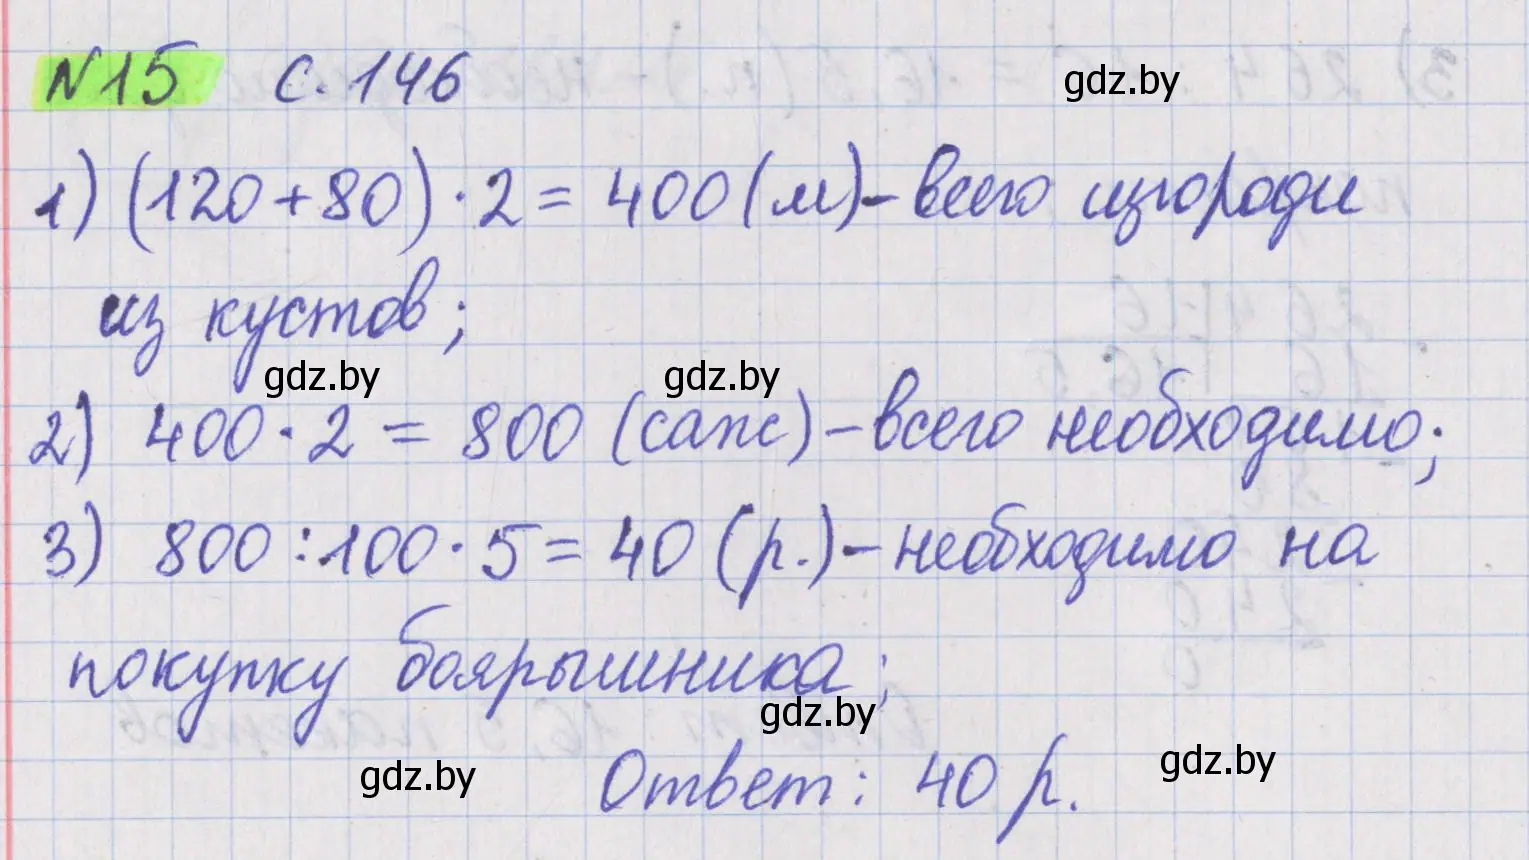 №15 с. 146
gdz.by
1) (120+80)·2= 400(м)-всего изгороди
из кустов;
gdz.by gdz.by
2) 400·2 = 800 (саж)-всего необходимо;
3) 800:100·5=40 (р.)-необходимо на
покупку боярышника;
gdz.by
gdz.by gdz.by
Ответ: 40 р.